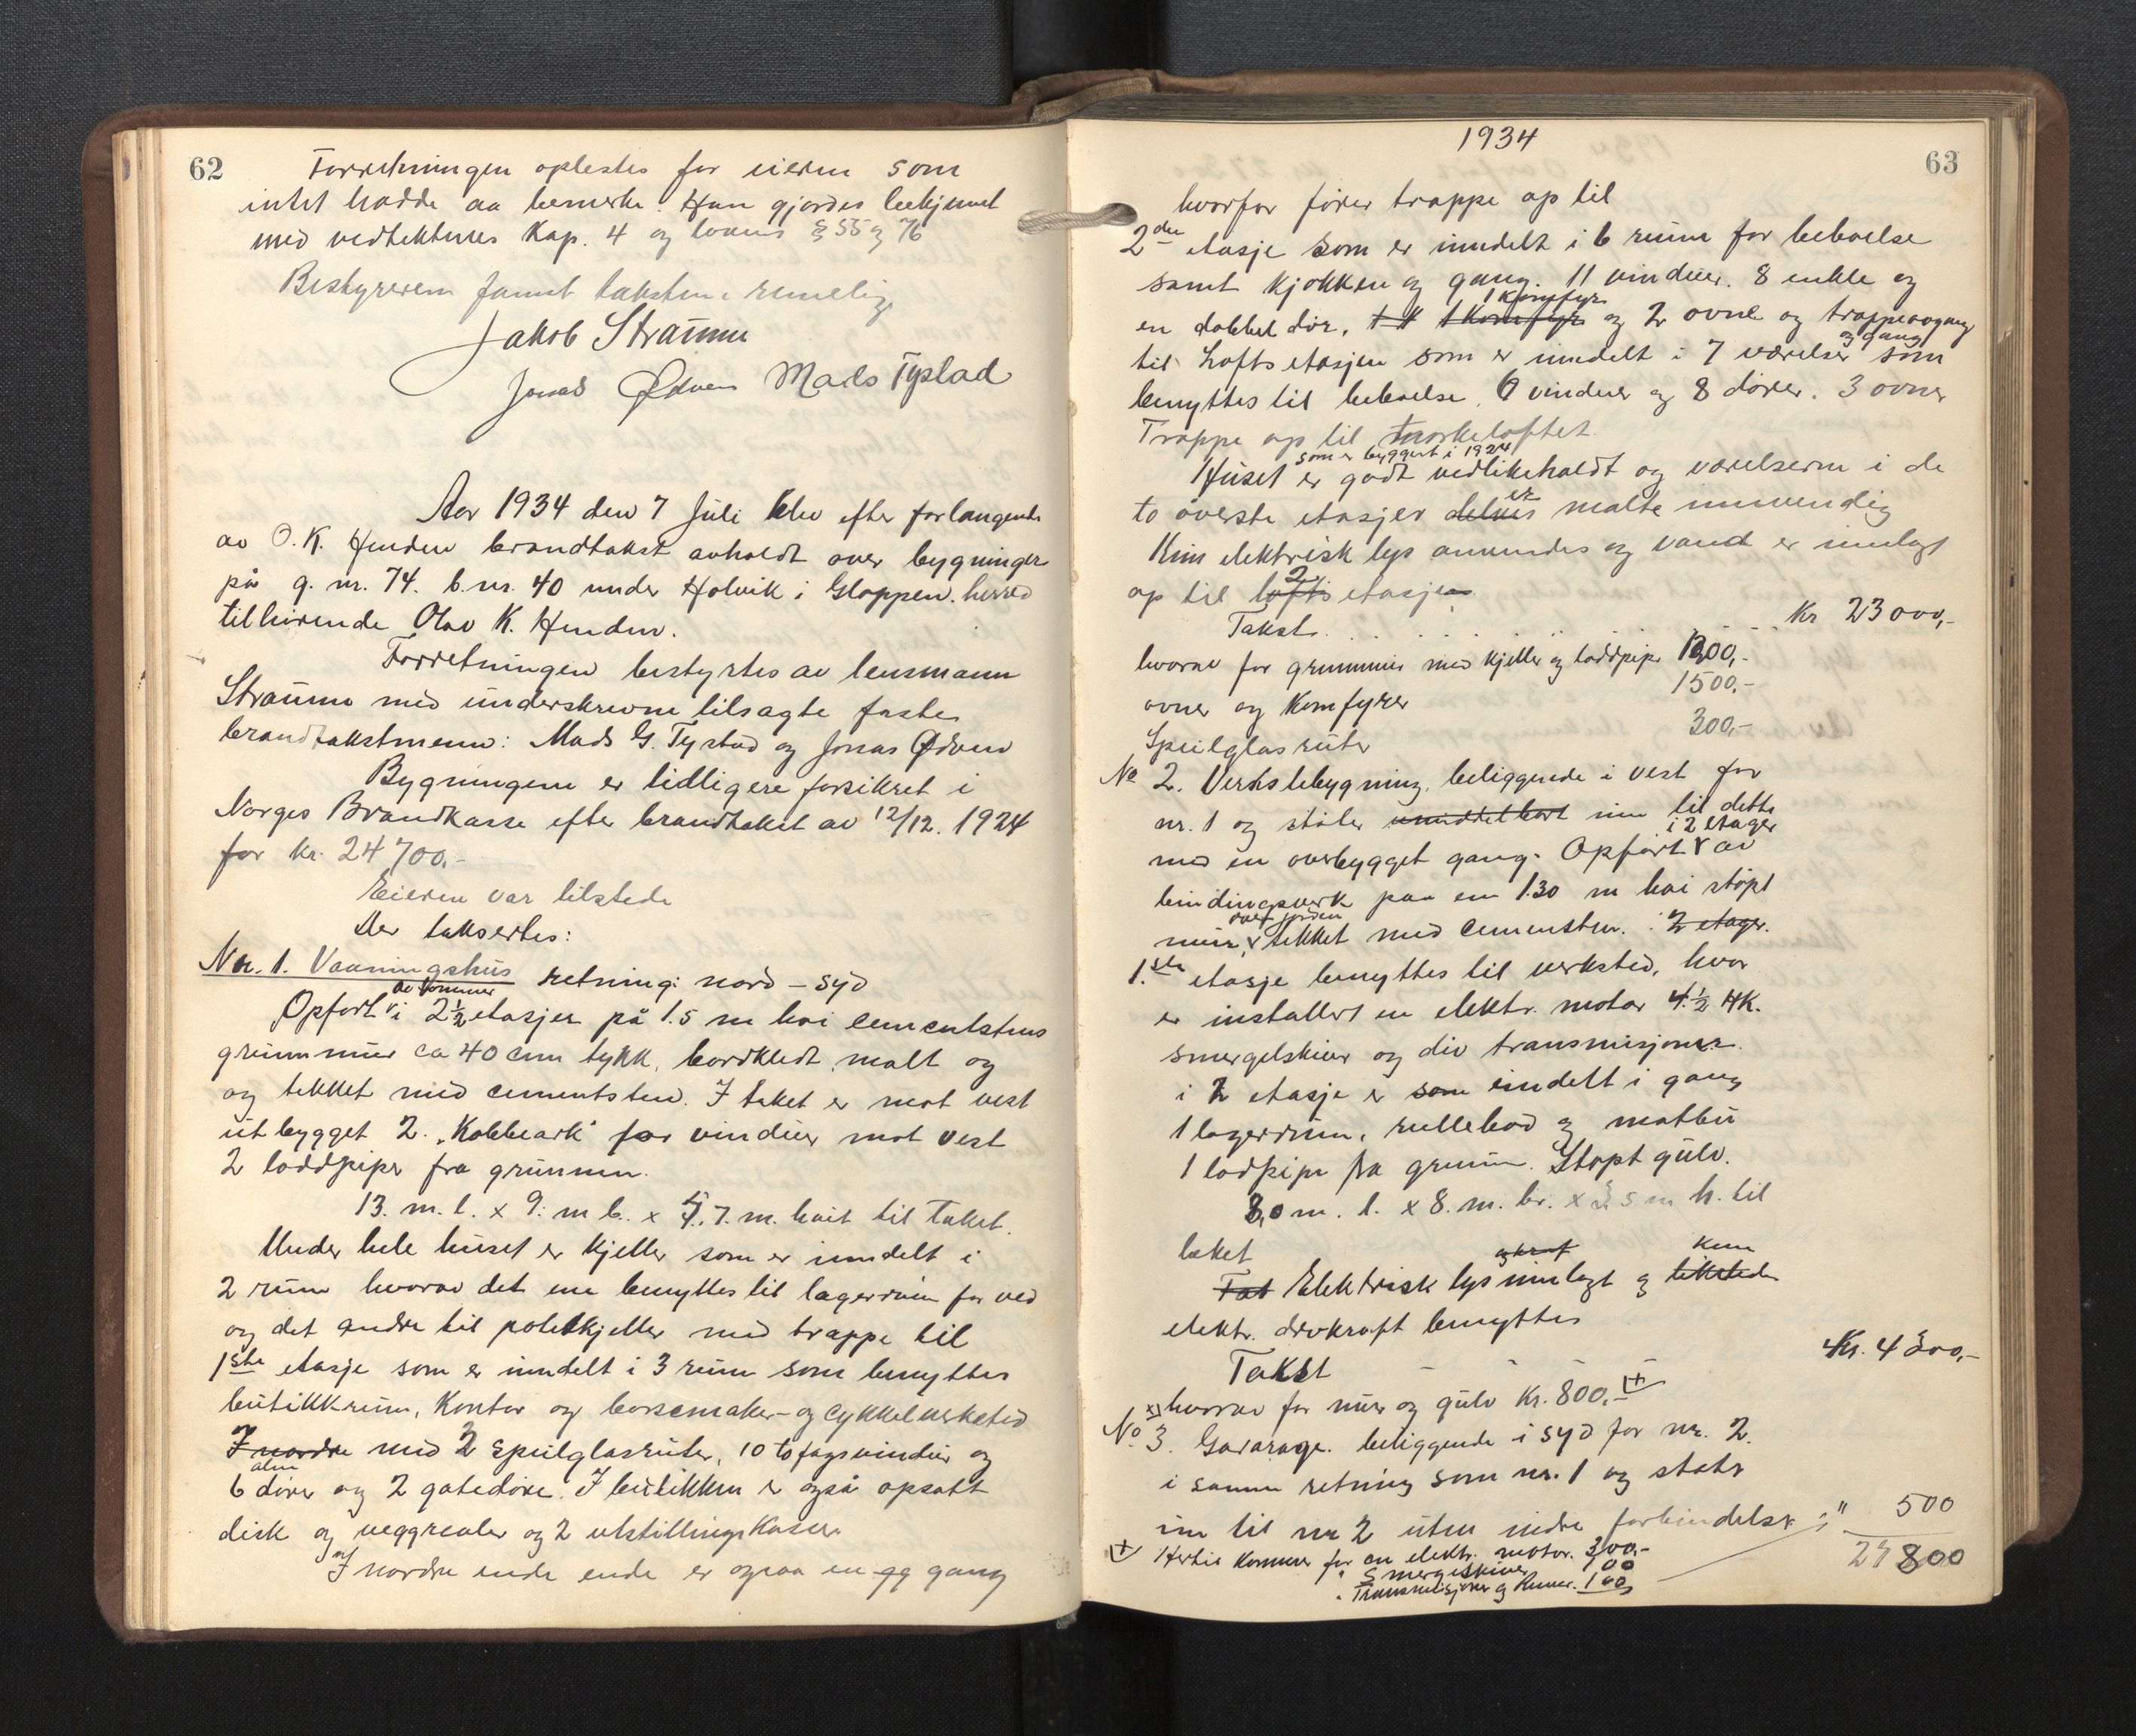 62
Forretningen oplestes for eieren som
intet hadde aa bemerke. Han gjordes bekjennt
med vedtektenes Kap. 4 og lovens § 55 og 76
Bestyreren fannt taksten rimelig
Jakob Straume
Jonas Ødven Mads Tystad
Aar 1934 den 7 Juli blev efter forlangende
av O. K. Henden brandtakst avholdt over bygninger
på g. nr. 74. b. nr. 40 under Holvik i Gloppen herred
tilhørende Olav K. Henden.
Forretningen bestyrtes av lensmann
Straume med underskrevne tilsagte faste
brandtakstmenn: Mads G. Tystad og Jonas Ødven
Bygningene er tidligere forsikret i
Norges Brandkasse efter brandtakst av 12/12. 1924
for kr. 24700.-
Eieren var tilstede
Der taksertes:
Nr. 1. Vaaningshus retning: nord - syd
av tømmer
Opført i 2½ etasjer på 1.5 m høi cementstens
grunnmur ca 40 cm tykk, bordkledt, malt og
og tekket med cementsten. I taket er mot vest
utbygget 2. "Kobbeark" for vinduer mot vest
2 loddpiper fra grunnen.
13. m. l. x 9. m b. x 7. m. høit til taket.
Under hele huset er kjeller som er inndelt i
2 rum hvorav det ene benyttes til lagerrum for ved
og det andre til potetkjeller med trappe til
1ste etasje som er inndelt i 3 rum som benyttes
butikkrum, Kontor og børsemaker- og cykkelverksted
I nordre med 2 speilglasruter, 10 tofagsvinduer og
alm
6 dører og 2 gatedøre. I butikken er også opsatt
disk og veggreoler og 2 utstillingskasser
I nordre ende ende er ogsaa en gg gang
1934
63
hvorfor fører trappe op til
2den etasje som er inndelt i 6 rum for beboelse
samt kjøkken og gang. 11 vinduer. 8 enkle og
1 komfyr
en dobbel dør, 1 komfyr og 2 ovne og trappeopgang
og gang
til Loftsetasjen som er inndelt i 7 værelser som
benyttes til beboelse. 6 vinduer og 8 dører. 3 ovner
Trappe op til tørkeloftet.
som er bygget i 1924
Huset er godt vedlikeholdt og værelserne i de
er
to øverste etasjer delvis malte innvendig
Kun elektrisk lys anvendes og vand er innlagt
2
op til lofts etasjen
Takst. . . . . . . Kr 23000,-
hvorav for grunnmur med kjeller og loddpiper 1200,-
ovner og Komfyrer 1500,-
Speilglasruter 300,-
No 2. Verkstebygning, beliggende i vest for
nr. 1 og støter umiddelbart inn til dette
i 2 etager
med en overbygget gang. Opført av
bindingsverk paa en 1.30 m høi støpt
over jorden
mur, tekket med cementsten. 2 etager.
1.ste etasje benyttes til verksted, hvor
er installert en elektr. motor 4½ HK.
smergelskiver og div transmisjoner.
i 2 etasje er som inndelt i gang
1 lagerrum, rullebod og matbu
1 lodpipe fra grunn. Støpt gulv.
8,0 m. l. x 8. m. br. x 5 m h. til
taket
og kraf kun
Tat Elektrisk lys innlagt og tilsteden
elektr. drivkraft benyttes
Takst - - - - Kr. 4300,-
hvorav for mur og gulv Kr. 800,-
No. 3. Gararage. beliggende i syd for nr. 2.
i samme retning som nr. 1 og støter
inn til nr 2 uten indre forbindelse " 500
27800
Hertil kommer for en elektr. motor. 300,-
" Smergelskiver 100
" Transmisjoner og Remer. 100,